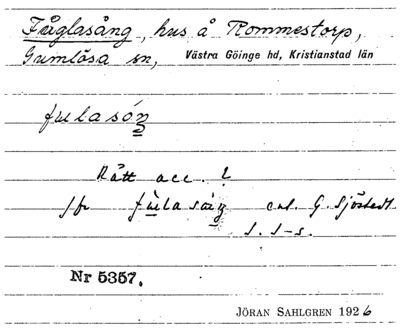 Fåglasång, hus å Rommestorp,
Gumlösa sn, Västra Göinge hd, Kristianstad län
fulasóŋ
Rätt acc. ?
Jfr fùlasåŋ enl. G. Sjöstedt
J. S-s.
Nr 5357.
JÖRAN SAHLGREN 1926